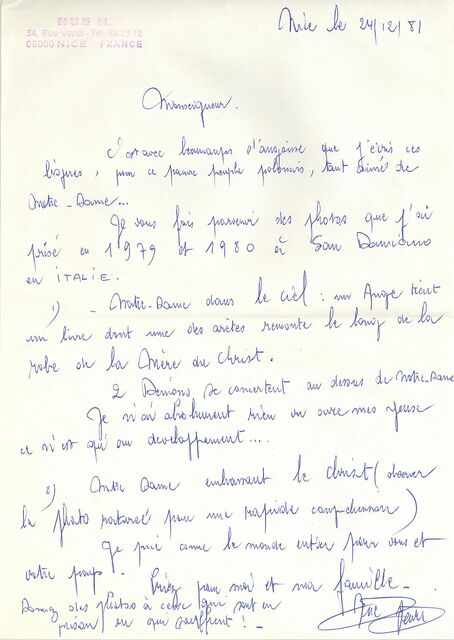 34, Rue Verdi - Tél. 88.23.12
06000 NICE FRANCE
Nice le 24/12/81
Monseigneur.
C'est avec beaucoups d'angoisse que j'écris ces
lignes, pour ce pauvre peuple polonais, tant aimé de
Notre-Dame...
Je vous fais parvenir des photos que j'ai
prisé en 1979 et 1980 à San Damiano
en ITALIE.
1) - Notre-Dame dans le ciel : un Ange tient
un livre dont une des arètes remonte le long de la
robe de la Mère du Christ.
2 Démons se concertent au dessus de Notre-Dame
Je n'ai absolument rien vu avec mes yeux
ce n'est qu'au developpement....
2) Notre Dame embrassant le Christ (observer
la photo pour une rapide compréhension)
Je prie comme le monde entier pour vous et
votre pays. Priez pour moi et ma famille -
Donnez des photos à ceux qui sont en
prison ou qui souffrent ! -